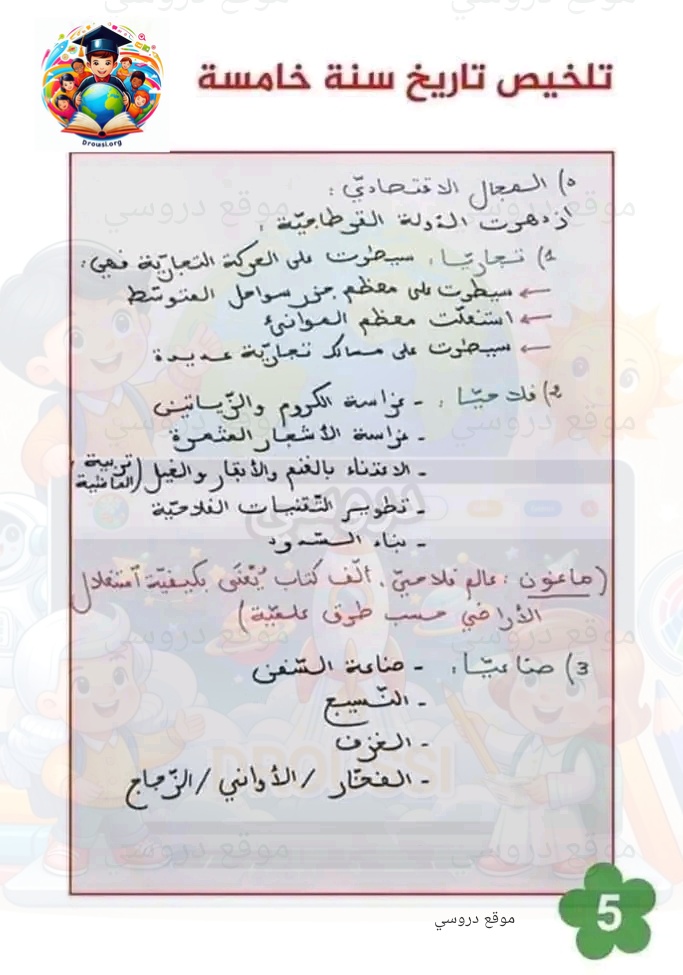 تلخيص تاريخ سنة خامسة
Drousi.org
5) المجال الاقتصاديّ :
ازدهرت الدولة القرطاجيّة :
1) تجاريّا : سيطرت على الحركة التجاريّة فهي :
← سيطرت على معظم جزر سواحل المتوسّط
← استغلّت معظم الموانئ
← سيطرت على مسالك تجاريّة عديدة
2) فلاحيّا : - غراسة الكروم والزّياتين
- غراسة الأشجار المثمرة
- الاعتناء بالغنم والأبقار والخيل (تربية الماشية)
- تطوير التّقنيات الفلاحيّة
- بناء السّدود
(ماغون : عالم فلاحيّ، ألّف كتاب يُعْنَى بكيفيّة استغلال
الأراضي حسب طرق علميّة)
3) صناعيّا : - صناعة السّفن
- النّسيج
- الخزف
- الفخّار / الأواني / الزّجاج
دروسي
DROUSSI
موقع دروسي
5